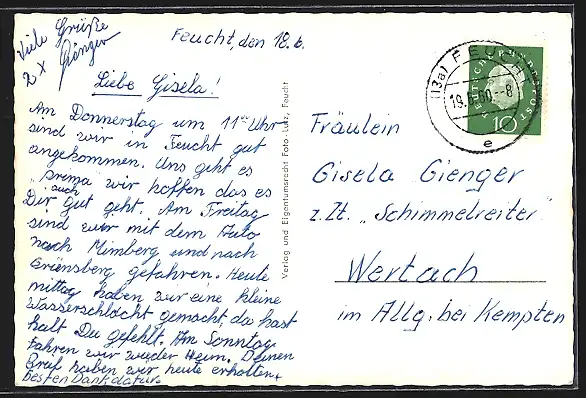 Viele Grüße
2 x Gienger
Feucht, den 18.6.
Liebe Gisela!
Am Donnerstag um 11 Uhr
sind wir in Feucht gut
angekommen. Uns geht es
prima wir hoffen das es
Dir auch gut geht. Am Freitag
sind wir mit dem Auto
nach Mimberg und nach
Grünsberg gefahren. Heute
mittag haben wir eine kleine
Wasserschlacht gemacht, da hast
halt Du gefehlt. Am Sonntag
fahren wir wieder Heim. Deinen
Brief haben wir heute erhalten
besten Dank dafür.
Verlag und Eigentumsrecht Foto-Lutz, Feucht
(13a) FEUCHT
19.6.60.--8
e
DEUTSCHE BUNDESPOST
10
Fräulein
Gisela Gienger
z. Zt. "Schimmelreiter"
Wertach
im Allg. bei Kempten